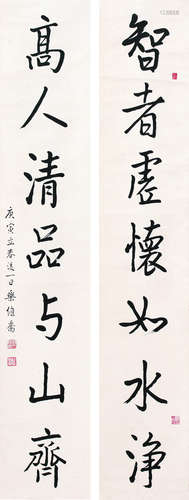 智者虚懷如水浄
高人清品与山齊
庚寅立春後一日樂維喬